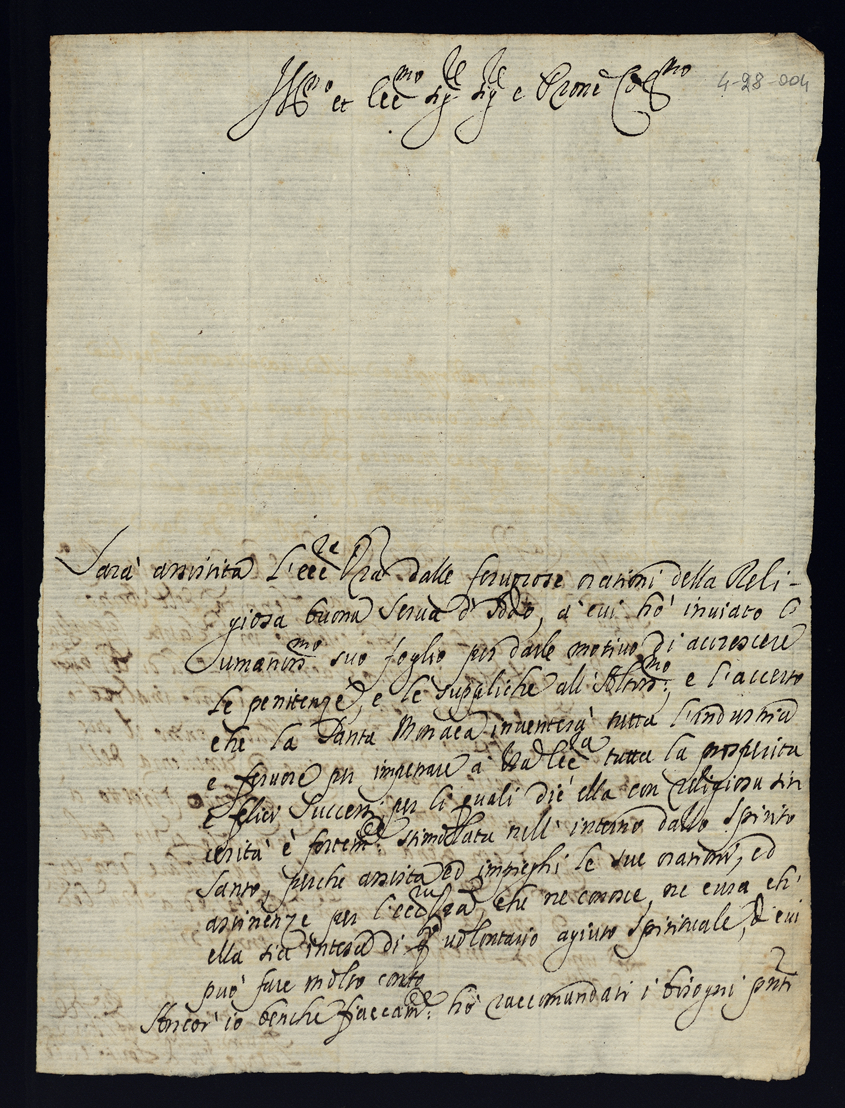 Ill.mo et Ecc.mo Sig.re Sig.re e Prone Col.mo
4-28-004
Sarà assistita l'Ecc.za V.ra dalle fervorose orationi della Reli-
giosa buona serva d'Iddio, à cui hò inviato l'
umaniss.mo suo foglio per darle motivo di accrescere
le penitenze, e le suppliche all'Altiss.mo e l'accerto
che la Santa Monaca inventerà tutta l'industria
e fervore per impetrare à V.ra Ecc.za tutta la prosperità
e felici successi per li quali dice ella con religiosa sin
cerità è fortem.te stimolata nell'interno dallo Spirito
Santo, perche assista ed impieghi le sue orationi, ed
astinenze per l'Ecc.za V.ra, che ne conosce, ne cura ch'
ella sia intesa di volontario agiuto spirituale, di cui
può fare molto conto
Ancor'io benche fiaccam.te hò raccomandati i bisogni pnti